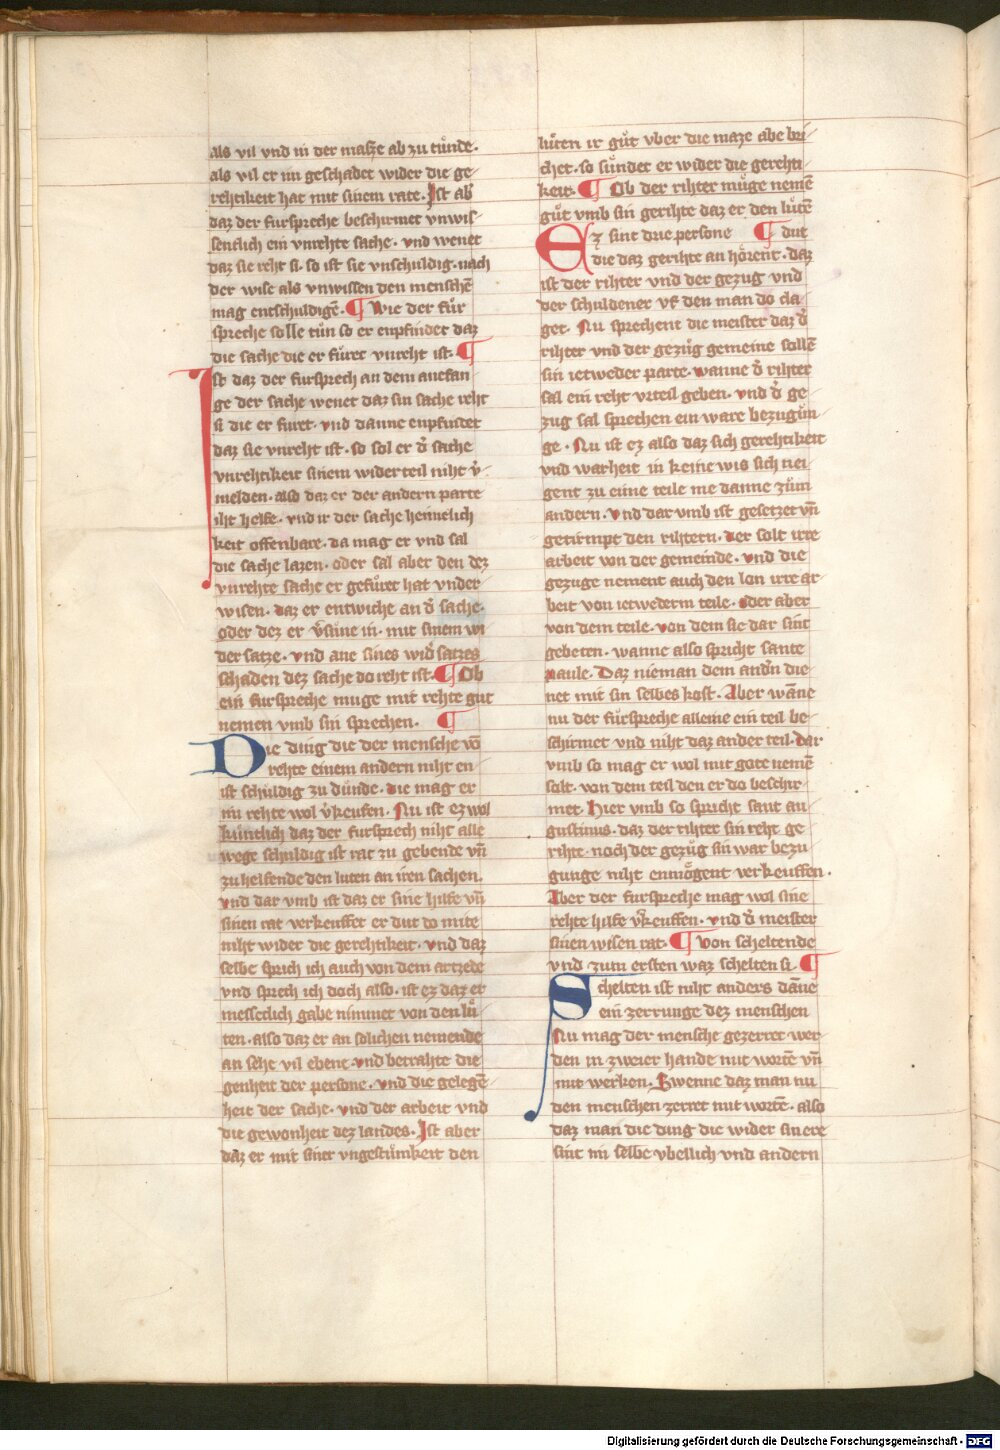 als vil vnd in der masze ab zu tuͦnde.
als vil er im geschadet wider die ge-
rehtikeit hat mit sinem rate. Ist ab͛
daz der fursprecher beschirmet vnwis-
sentlich ein vnrehte sache. vnd wenet
daz sie reht si. so ist sie vnschuldig. nach
der wise als vnwissen den menschē
mag entschuldigē. ¶ Wie der fuͤr
spreche solle tuͦn so er enpfindet daz
die sache die er fuͤret vnreht ist. ¶
Ist daz der fursprech an dem anefan-
ge der sache wenet daz sin sache reht
si die er furet. vnd danne enpfindet
daz sie vnreht ist. so sol er d͛ sache
vnrehtikeit sinem widerteil niht v͛-
melden. also daz er der andern parte
iht helfe. vnd ir der sache heimelich
keit offenbare. da mag er vnd sal
die sache lazen. oder sal aber den dez
vnrehte sache er gefuͤret hat vnder
wisen. daz er entwiche an d͛ sache.
oder dez er v͛suͤne in. mit sinem wi
dersatze. vnd ane sines wid͛satzes
schaden dez sache do reht ist. ¶ Ob
ein fursprecher muge mit rehte gut
nemen vmb sin sprechen. ¶
Die ding die der mensche vō
rehte einem andern niht en
ist schuldig zu duͦnde. die mag er
im rehte wol v͛keufen. Nu ist ez wol
kuntlich daz der fursprech niht alle
wege schuldig ist rat zu gebende vn̄
zu helfende den luten an iren sachen.
vnd dar vmb ist daz er sine hilfe vn̄
sinen rat verkeuffet er dut do mite
niht wider die gerehtikeit. vnd daz
selbe sprich ich auch von dem artzede
vnd sprech ich doch also. ist ez daz er
messeclich gabe nimmet von den luͤ-
ten. also daz er an solichen nemende
an sehe vil ebene. vnd betrahte die
genheit der persone. vnd die gelegē-
heit der sache. vnd der arbeit vnd
die gewonheit dez landes. Ist aber
daz er mit siner vngestuͤmkeit den
luͤten ir guͦt vber die maze abe bri-
chet. so suͤndet er wider die gerehti-
keit. ¶ Ob der rihter muͤge nemē
guͦt vmb sin gerihte daz er den luͤtē
Ez sint drie persone ¶ dut
die daz gerihte an hoͤrent. daz
ist der rihter vnd der gezug vnd
der schuldener vf den man do cla-
get. Nu sprechent die meister daz d͛
rihter vnd der gezuͤg gemeine sollē
sin ietweder parte. wanne d͛ rihter
sal ein reht vrteil geben. vnd d͛ ge-
zug sal sprechen ein ware bezugun-
ge. Nu ist ez also daz sich gerehtikeit
vnd warheit in keine wis sich nei-
gent zu eime teile me danne zuͦm
andern. vnd dar vmb ist gesetzet vn̄
getirmpt den rihtern. der solt irre
arbeit von der gemeinde. vnd die
gezuge nement auch den lon irre ar-
beit von ietwederm teile. oder aber
von dem teile. von dem sie dar sint
gebeten. wanne also spricht sante
paule. Daz nieman dem andn̄ die-
net mit sin selbes kost. Aber wāne
nu der fuͤrspreche alleine ein teil be-
schirmet vnd niht daz ander teil. dar
vmb so mag er wol mit gote nemē
solt. von dem teil den er do beschir-
met. Hier vmb so spricht sant au-
gustinus. daz der rihter sin reht ge-
rihte. noch der gezuͤg sin war bezu-
gunge niht enmoͤgent verkeuffen.
Aber der furspreche mag wol sine
rehte hilfe v͛keuffen. vnd d͛ meister
sinen wisen rat. ¶ von scheltende
vnd zum ersten waz schelten si. ¶
Schelten ist niht anders dāne
ein zerrunge dez menschen
Nu mag der mensche gezerret wer-
den in zweier hande mit wortē vn̄
mit werken. Swenne daz man nu
den menschen zerret mit wortē. also
daz man die ding die wider sin ere
sint im selbe vbellich vnd andern
Digitalisierung gefördert durch die Deutsche Forschungsgemeinschaft - DFG